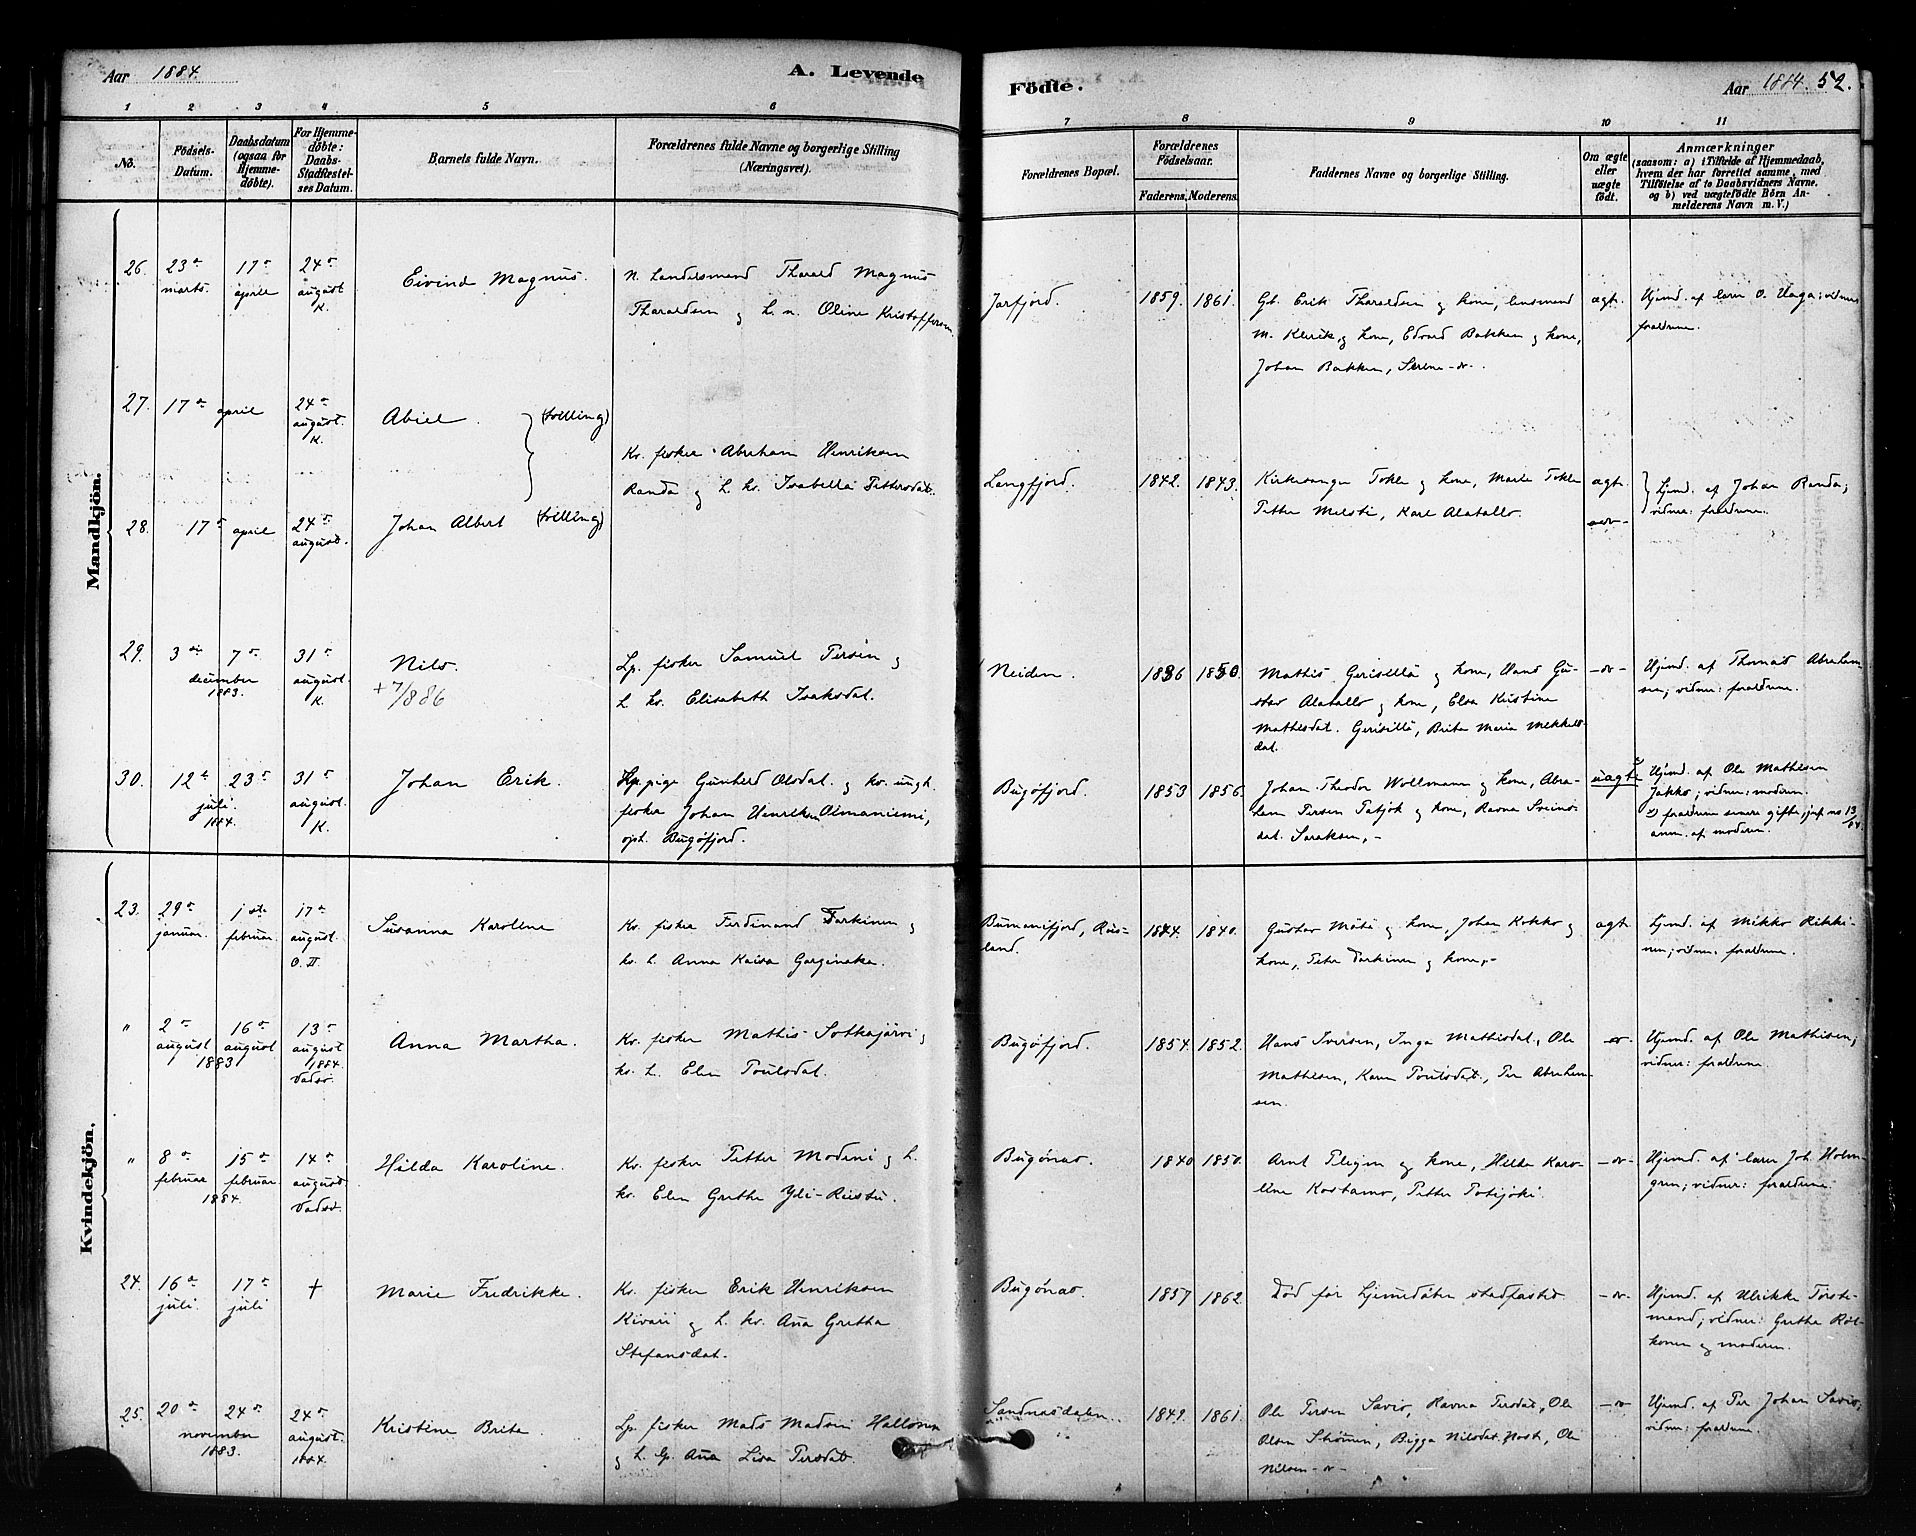 Aar 1884.
A. Levende
Födte.
Aar 1884. 52.
1 2 3 4 5 6 7 8 9 10 11
No.
Födsels-Datum.
Daabsdatum (ogsaa for Hjemme-døbte).
For Hjemme-døbte: Daabs-Stadfæstel-ses Datum.
Barnets fulde Navn.
Forældrenes fulde Navne og borgerlige Stilling (Næringsvei).
Forældrenes Bopæl.
Forældrenes Födselsaar.
Faderens. Moderens.
Faddernes Navne og borgerlige Stilling.
Om ægte eller uægte födt.
Anmærkninger
(saasom: a) i Tilfælde af Hjemmedaab,
hvem der har forrettet samme, med
Tilföielse af to Daabsvidners Navne,
og b) ved uægtefödte Börn An-
melderens Navn m. V.)
Mandkjön.
26. 23de marts. 17de april 24de august K. Eivind Magnus.
N. Landsmand Tharald Magnus
Tharaldsen og h. n. Oline Kristoffersen
Jarfjord. 1859. 1861.
Gb. Erik Tharaldsen og kone, lensmand
M. Klerik og kone, Edvard Bakken og kone,
Johan Bakken, Serene -do-.
ægt.
Hjemd. af lærer O. Vaga; vidner
forældrene.
27. 17de april 24de august. K. Abiel. (tvilling)
28. 17de april 24de august. Johan Albert (tvilling)
Kv. fisker Abraham Henriksen
Randa og h. kv. Isabella Pettersdat.
Langfjord. 1842. 1843.
Kirkesanger Tokle og kone, Marie Tokle
Petter Mielsti, Karl Alatallo.
ægt.
-do-
Hjemd. af Johan Randa;
vidner: forældrene.
29. 3die 7de december 1883. 31te august. K. Nils.
+ 7/8 86
Lp. fisker Samuel Persen og
h. kv. Elisabeth Isaksdat.
Neiden. 1836 1850.
Mathis Gerisellä og kone, Hans Gu-
stav Alatallo og kone, Elsa Kristine
Mathisdat. Gerisellä, Brita Maria Mikkels-
dat.
-do-
Hjemd. af Thomas Abraham-
sen; vidner: forældrene.
30. 12te 23de juli. 1884. 31te august. K. Johan Erik.
Lp. pige Gunhild Olsdat. og kv. ungk.
fisker Johan Henriksen Olmaniemi,
oph. Bugöfjord.
Bugöfjord. 1853 1856.
Johan Theodor Wollmann og kone, Abra-
ham Persen Patjok og kone, Ravna Sveins-
dat. Saraksen, -
uægte
Hjemd. af Ole Mathisen
Jakko; vidner: moderen.
forældrene senere gifte, jvf no 13/84.
anm. af moderen.
Kvindekjön.
23. 29de januar. 1ste februar. 17de august. O. II. Susanna Karoline
Kv. fisker Ferdinand Tarkinen og
kv. h. Anna Kaisa Garginaka.
Bumanifjord, Rus-
land. 1844. 1840.
Gustav Mäki og kone, Johan Kokko og
kone, Peter Tarkinen og kone, -
ægt
Hjemd. af Mikko Rikki-
nen; vidner: forældrene.
" 2de august 16de august 1883 13de august 1884. Vadsö. Anna Martha.
Kv. fisker Mathis Sotkajärvi og
kv. h. Elen Poulsdat.
Bugöfjord. 1854. 1852.
Hans Iversen, Inga Mathisdat., Ole
Mathisen, Karen Poulsdat., Per Abraham-
sen.
-do-
Hjemd. af Ole Mathisen;
vidner: forældrene.
" 8de februar 15de februar 1884. 14de august Vadsö. Hilda Karoline.
Kv. fisker Petter Modeni og h.
kv. Elen Grethe Yli-Riesti.
Bugönæs. 1840 1850.
Arnt Fligin og kone, Hilda Karo-
line Kostamo, Petter Potijöki.
-do-
Hjemd. af lærer Joh. Holm-
gren; vidner: forældrene.
24. 16de juli. 17de juli + Marie Fredrikke.
Kv. fisker Erik Henriksen
Kivari og h. kv. Ana Gretha
Stefansdat.
Bugönæs. 1857 1862.
Död för hjemmedåben stadfæstes
-do-
Hjemd. af Ulrikke Torste-
mand; vidner: Gretha Röt-
konen og moderen.
25. 20de 24de november 1883. 24de august. 1884. Kristine Brita.
Lp. fisker Mads Madsen Hallonen
og h. lp. Ana Lisa Persdat.
Sandnæsdalen. 1849. 1861.
Ole Persen Savio, Ravna Persdat., Ole
Olsen Strömm, Bigga Nilsdat. Noste, Ole
Nilsen -do-
-do-
Hjemd. af Per Johan Savio;
vidner: forældrene.